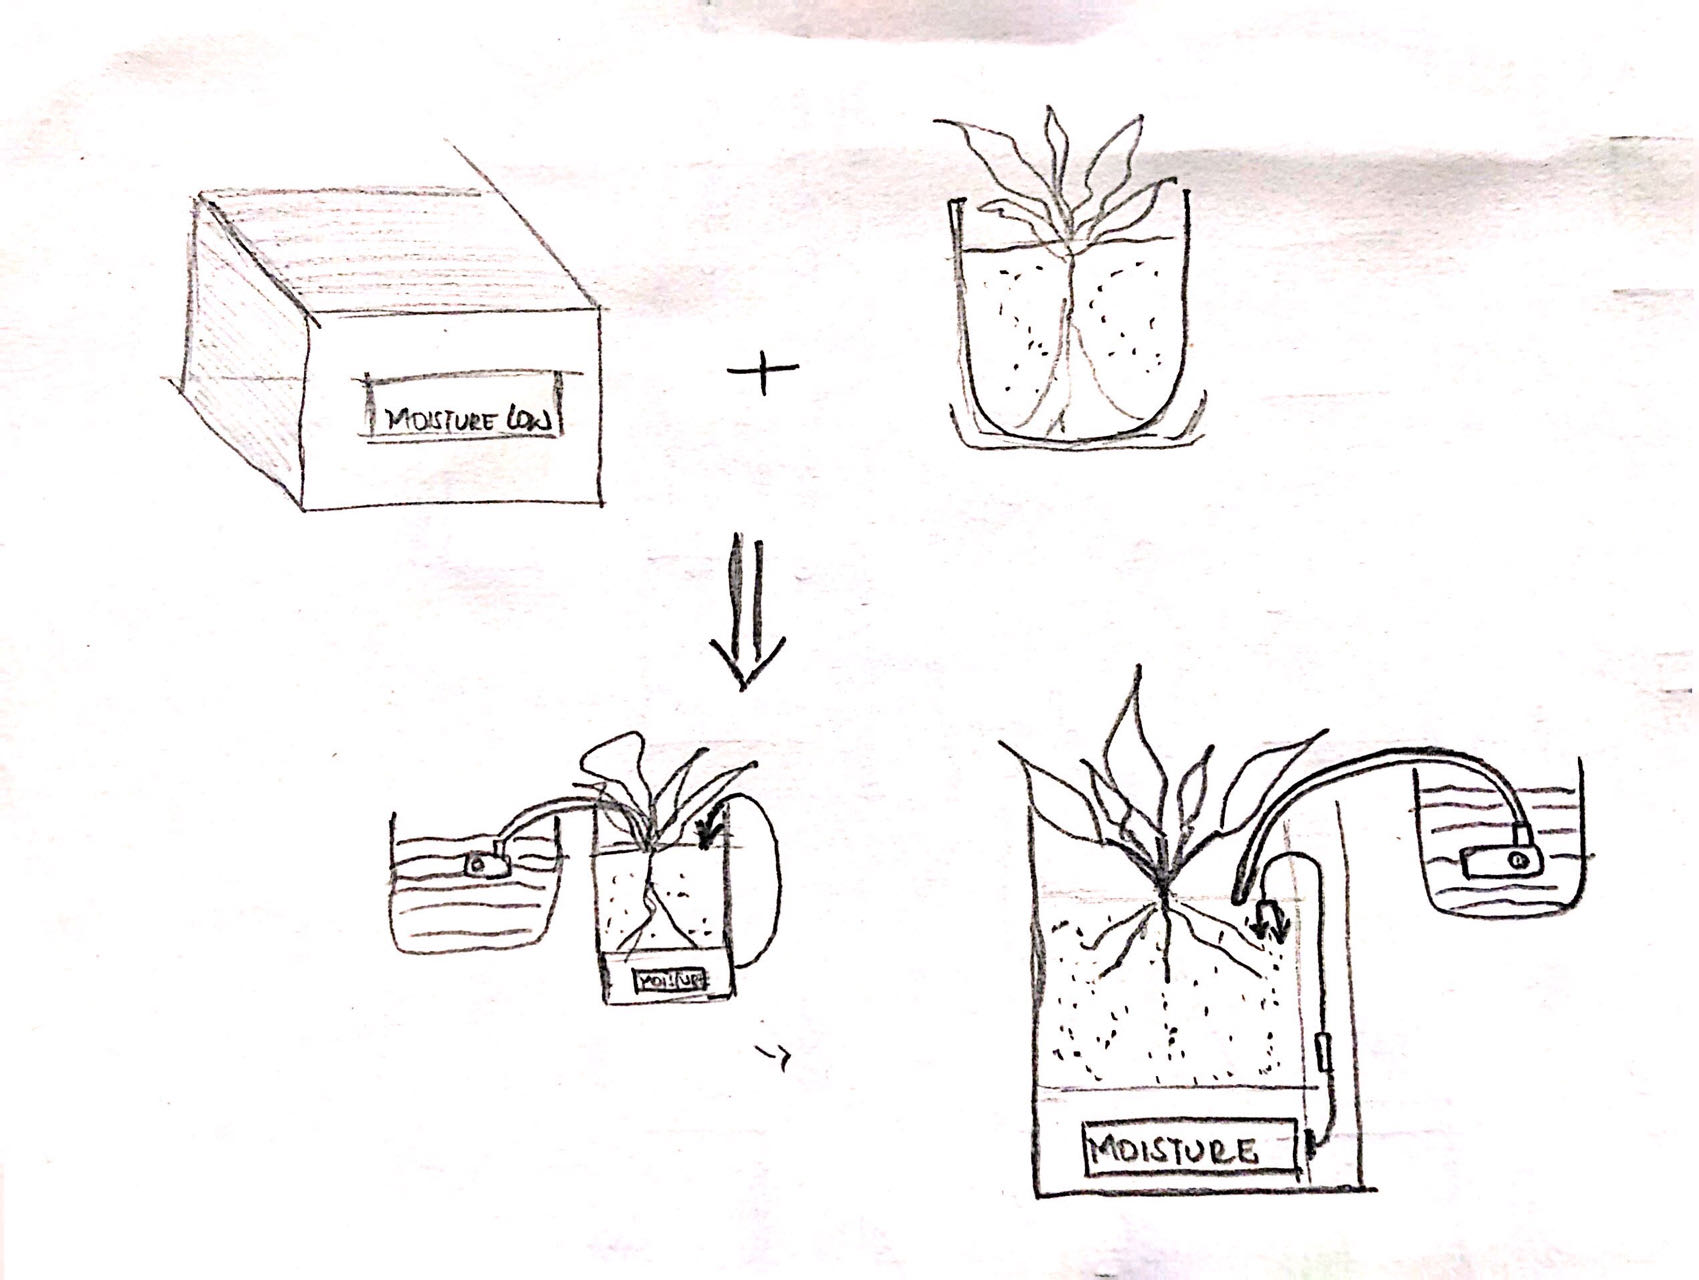 MOISTURE LOW
+
MOISTURE
MOISTURE